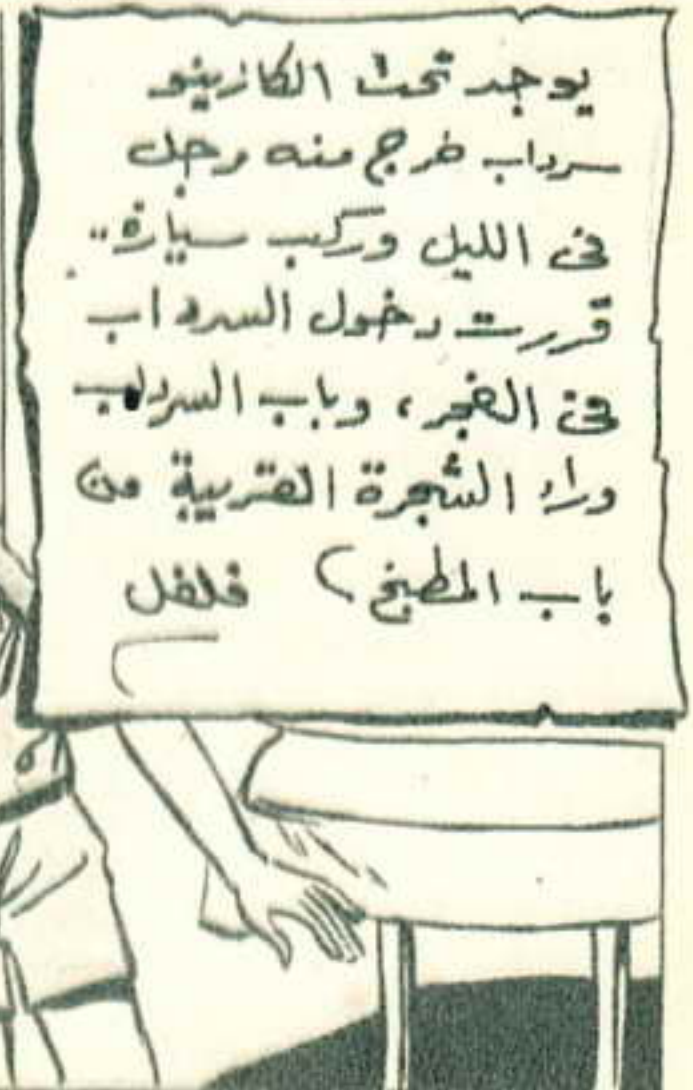 يوجد تحت الكازينو
سرداب خرج منه رجل
فى الليل وركب سيارة..
قررت دخول السرداب
فى الفجر، وباب السرداب
وراء الشجرة القريبة من
باب المطبخ؟ فلفل